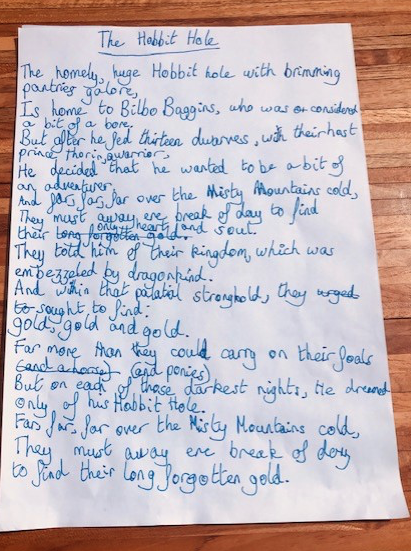 The Hobbit Hole
The homely, huge Hobbit hole with brimming
pantries galore,
Is home to Bilbo Baggins, who was considered
a bit of a bore.
But after he fed thirteen dwarves, with their host
prince Thorin, warrior,
He decided that he wanted to be a bit of
an adventurer.
And far, far, far over the Misty Mountains cold,
They must away ere break of day to find
only heart and soul.
their long forgotten gold.
They told him of their kingdom, which was
embezzeled by dragonkind.
And within that palatial stronghold, they urged
to sought to find:
gold, gold and gold.
Far more than they could carry on their foals
(and a horse) (and ponies)
But on each of those darkest nights, He dreamed
only of his Hobbit Hole.
Far, far, far over the Misty Mountains cold,
They must away ere break of day
to find their long forgotten gold.